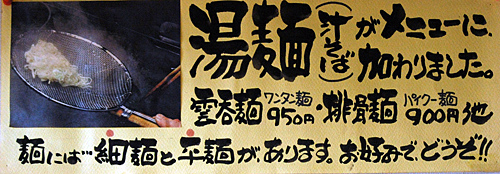 湯麺(汁そば)がメニューに、
加わりました。
雲呑麺 ワンタン麺 950円・排骨麺 パイクー麺 900円 他
麺には…細麺と平麺が、あります。お好みで、どうぞ!!